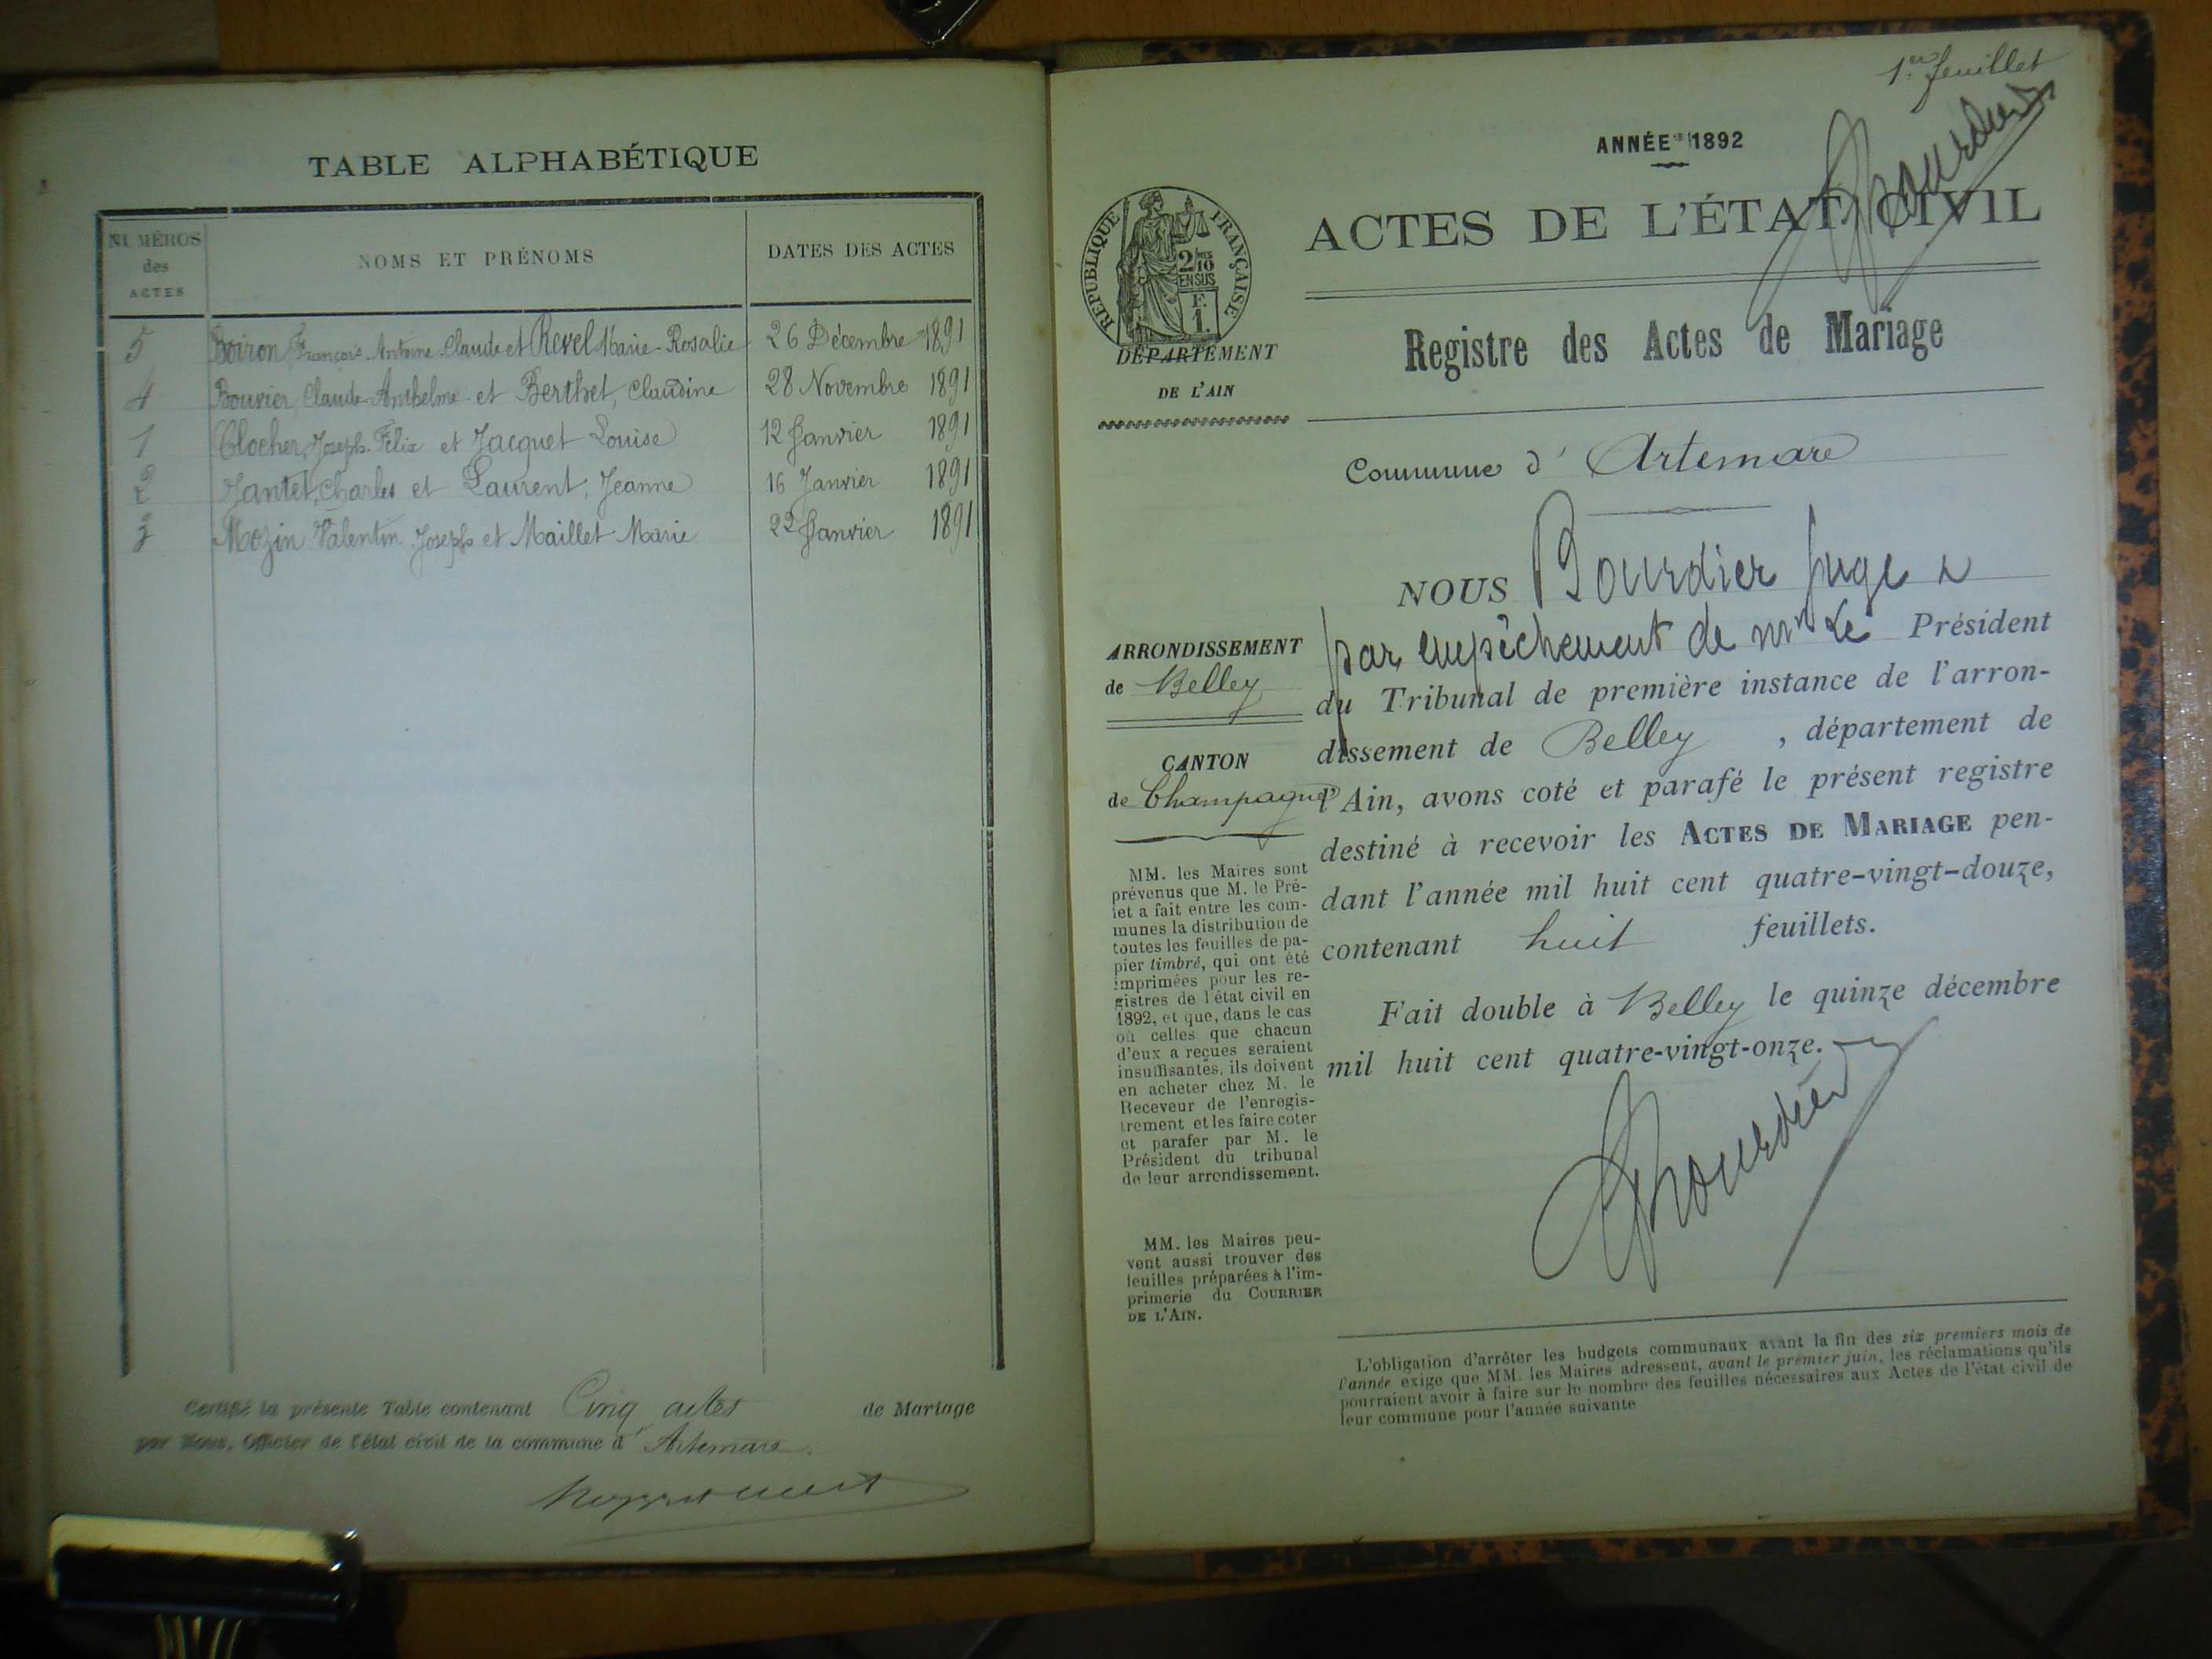 TABLE ALPHABÉTIQUE
NUMÉROS
des
ACTES
NOMS ET PRÉNOMS
DATES DES ACTES
5 Boiron, François-Antoine-Claude et Revel Marie-Rosalie 26 Décembre 1891
4 Bouvier, Claude-Anthelme et Berthet, Claudine 28 Novembre 1891
1 Clocher, Joseph-Félix et Jacquet Louise 12 Janvier 1891
2 Jantet, Charles et Laurent, Jeanne 16 Janvier 1891
3 Mozin Valentin-Joseph et Maillet Marie 22 Janvier 1891
Certifié la présente Table contenant Cinq actes de Mariage
par Nous, Officier de l'état civil de la commune d' Artemare
1er feuillet
Bourdier
ANNÉE 1892
RÉPUBLIQUE FRANÇAISE
2/10
EN SUS
F.
1.
ACTES DE L'ÉTAT CIVIL
DÉPARTEMENT
DE L'AIN
Registre des Actes de Mariage
Commune d' Artemare
ARRONDISSEMENT
de Belley
CANTON
de Champagne
MM. les Maires sont
prévenus que M. le Pré-
fet a fait entre les com-
munes la distribution de
toutes les feuilles de pa-
pier timbré, qui ont été
imprimées pour les re-
gistres de l'état civil en
1892, et que, dans le cas
où celles que chacun
d'eux a reçues seraient
insuffisantes, ils doivent
en acheter chez M. le
Receveur de l'enregis-
trement et les faire coter
et parafer par M. le
Président du tribunal
de leur arrondissement.
MM. les Maires peu-
vent aussi trouver des
feuilles préparées à l'im-
primerie du COURRIER
DE L'AIN.
NOUS Bourdier Juge
par empêchement de Mr Le Président
du Tribunal de première instance de l'arron-
dissement de Belley , département de
l'Ain, avons coté et parafé le présent registre
destiné à recevoir les ACTES DE MARIAGE pen-
dant l'année mil huit cent quatre-vingt-douze,
contenant huit feuillets.
Fait double à Belley le quinze décembre
mil huit cent quatre-vingt-onze.
Bourdier
L'obligation d'arrêter les budgets communaux avant la fin des six premiers mois de
l'année exige que MM. les Maires adressent, avant le premier juin, les réclamations qu'ils
pourraient avoir à faire sur le nombre des feuilles nécessaires aux Actes de l'état civil de
leur commune pour l'année suivante